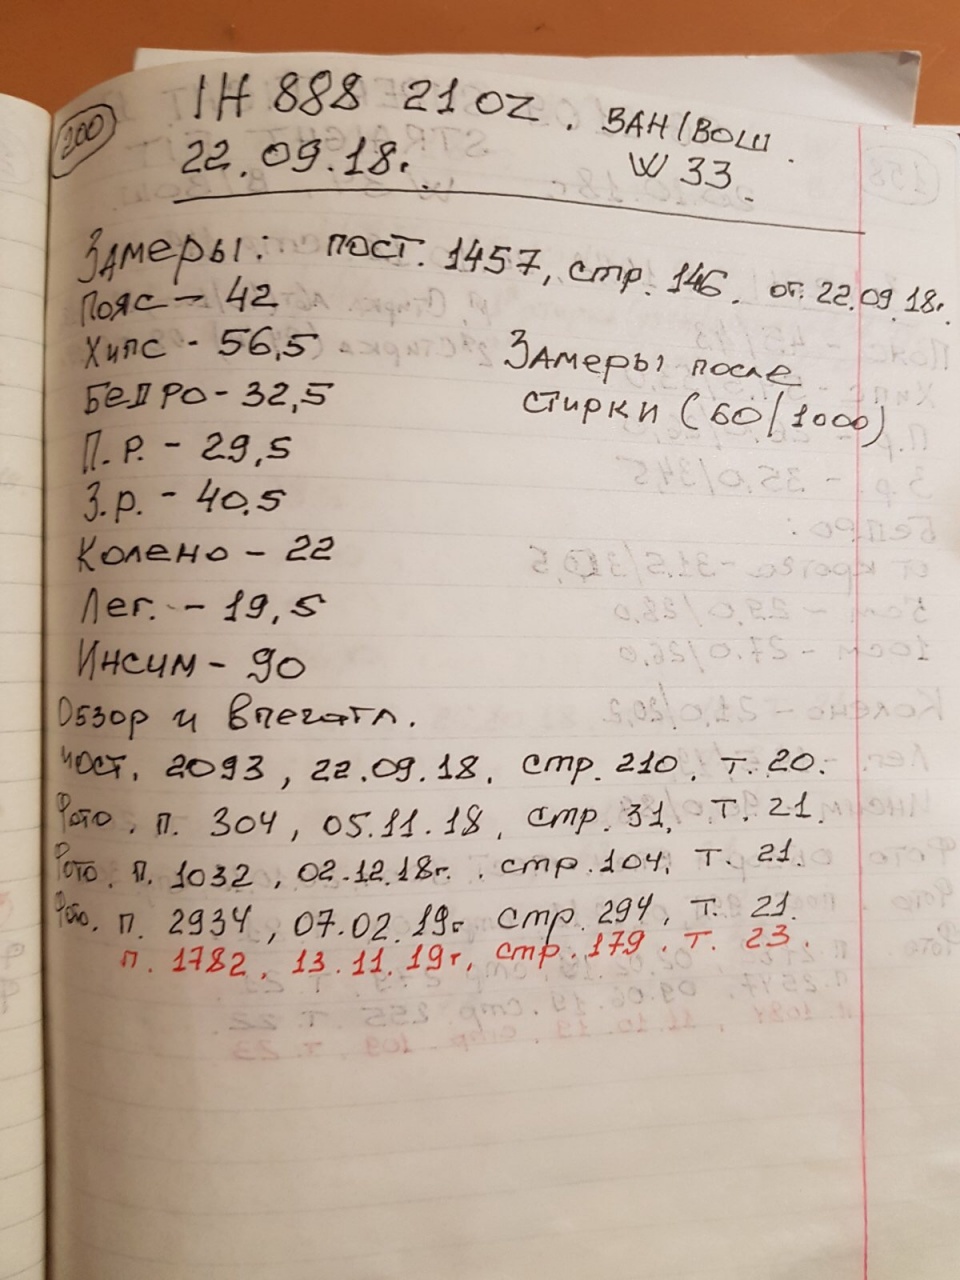 200
IH 888 21 OZ. ВАН/ВОШ.
22.09.18г. W 33
Замеры: пост. 1457, стр. 146. от. 22.09.18г.
Пояс - 42
Хипс - 56,5
Бедро - 32,5
П.р. - 29,5
З.р. - 40.5
Колено - 22
Лег. - 19,5
Инсим - 90
Замеры после
стирки (60/1000)
Обзор и впечатл.
пост. 2093, 22.09.18. стр. 210. т. 20.
Фото. п. 304, 05.11.18, стр. 31. т. 21.
Фото. п. 1032, 02.12.18г. стр. 104. т. 21.
Фото. п. 2934, 07.02.19г стр. 294, т. 21.
п. 1782, 13.11.19г, стр. 179. т. 23.